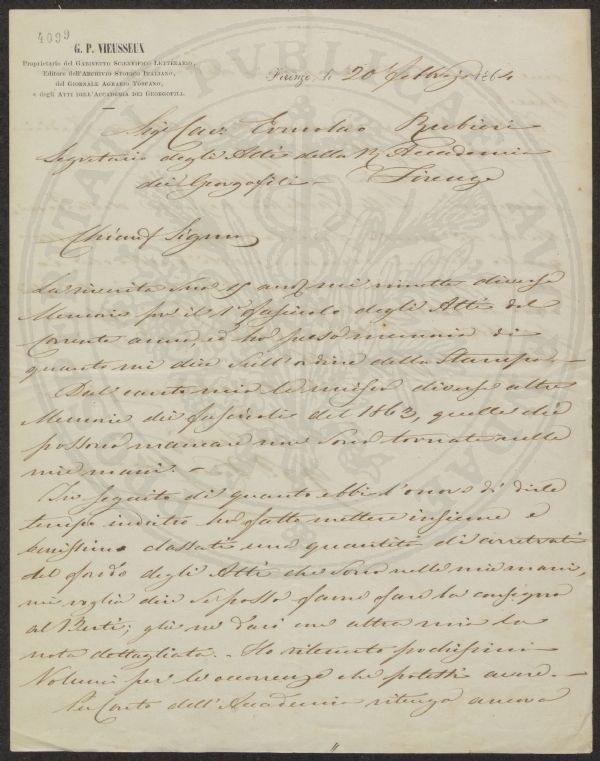 4099
G. P. VIEUSSEUX
Proprietario del GABINETTO SCIENTIFICO LETTERARIO,
Editore dell'ARCHIVIO STORICO ITALIANO,
del GIORNALE AGRARIO TOSCANO,
e degli ATTI DELL'ACCADEMIA DEI GEORGOFILI.
Firenze, li 20 febbrajo 1864
Sigr Cav Ermolao Rubieri
Segretario degli Atti della R. Accademia
dei Georgofili - Firenze
Chiarmo Signore
La riverita Sua 15 andte mi rimette diverse
Memorie per il 1° fascicolo degli Atti del
Corrente anno, ed ho preso memoria di
quanto mi dice sull'ordine della Stampa. -
Dal canto mio le rimisi diverse altre
Memorie dei fascicoli del 1863, quelle che
possono mancare non sono tornate nelle
mie mani. -
In seguito di quanto ebbi l'onore di dirle
tempo indietro ho fatto mettere insieme e
benissimo classati una quantità di arretrati
del fondo degli Atti che sono nelle mie mani,
mi voglia dire se posso farne fare la consegna
al Berti; glie ne darò con altra mia la
nota dettagliata. - Ho ritenuto pochissimi
Volumi per le occorrenze che potetti avere. -
Per Conto dell'Accademia ritengo ancora